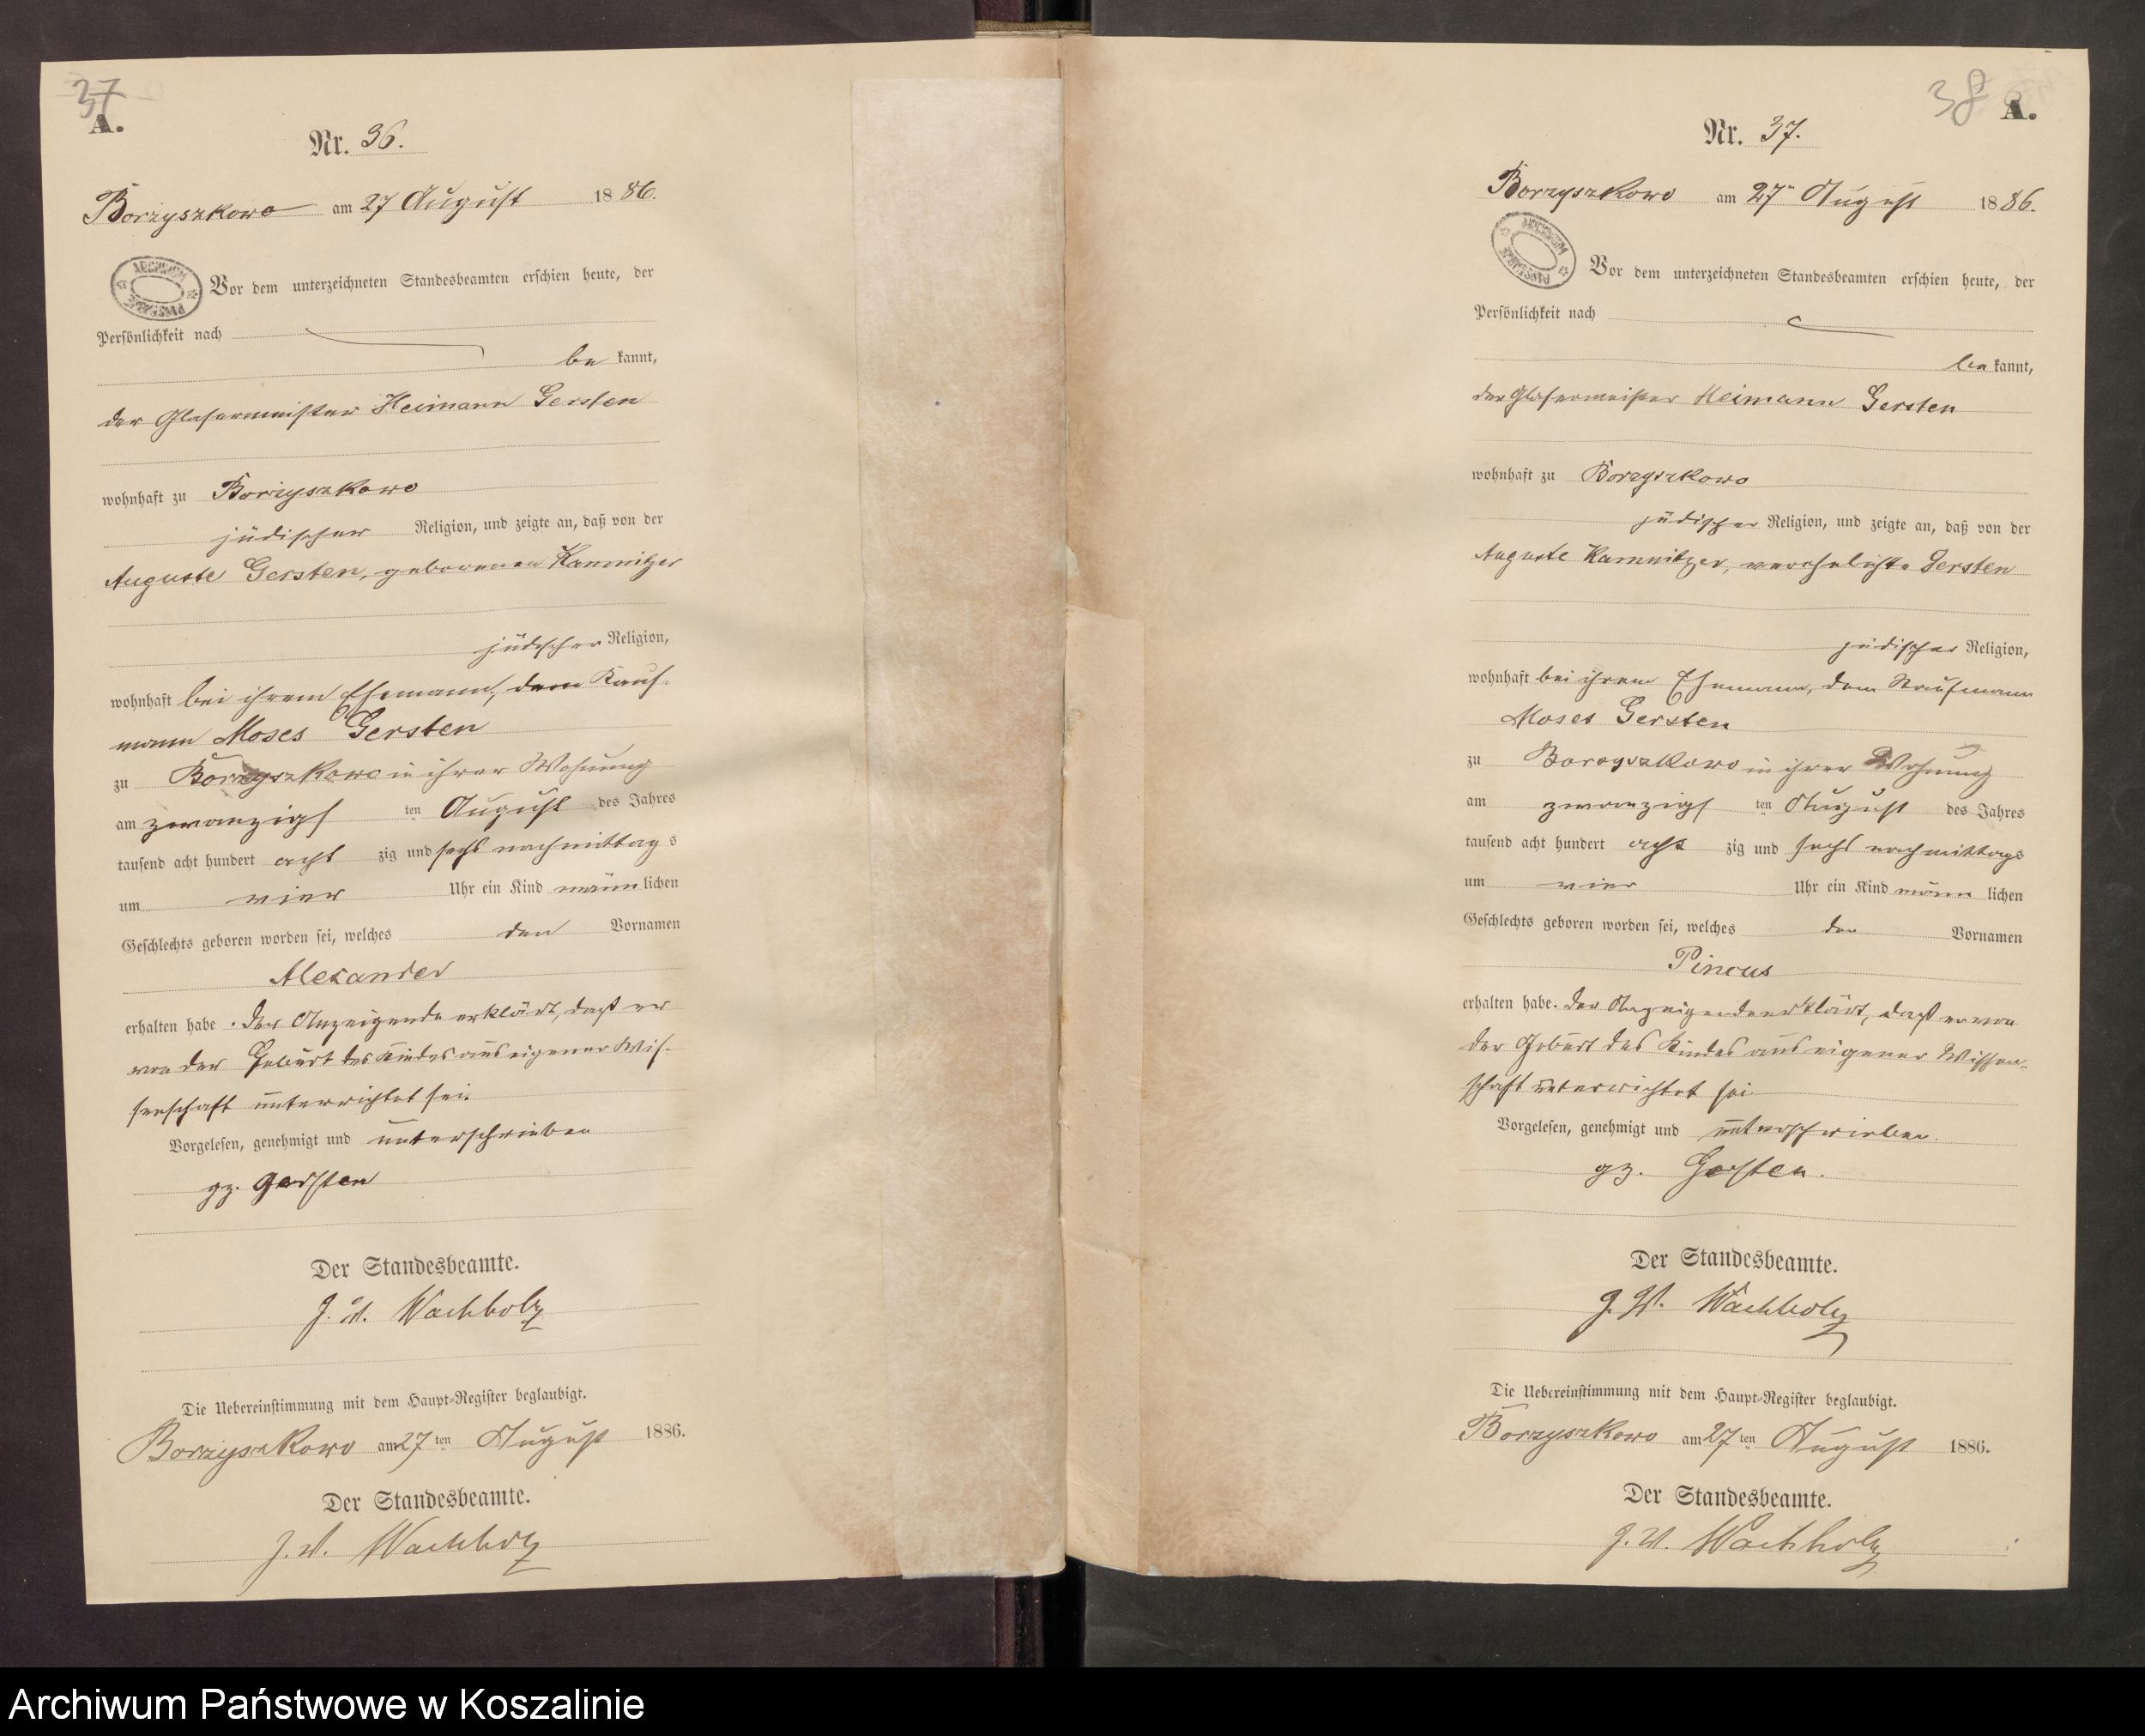 37
A.
Nr. 36.
Borzyszkowo am 27 August 1886.
ARCHIWUM PAŃSTWOWE
Vor dem unterzeichneten Standesbeamten erschien heute, der
Persönlichkeit nach
be kannt,
der Glasermeister Heimann Gersten
wohnhaft zu Borzyszkowo
jüdischer Religion, und zeigte an, daß von der
Auguste Gersten, geborenen Kamnitzer
jüdischer Religion,
wohnhaft bei ihrem Ehemann, dem Kauf-
mann Moses Gersten
zu Borzyszkowo in ihrer Wohnung
am zwanzigst ten August des Jahres
tausend acht hundert acht zig und sechs nachmittag s
um vier Uhr ein Kind männ lichen
Geschlechts geboren worden sei, welches den Vornamen
Alexander
erhalten habe. Der Anzeigende erklärt, daß er
von der Geburt des Kindes aus eigener Wis-
senschaft unterrichtet sei.
Vorgelesen, genehmigt und unterschrieben
gz. Gersten
Der Standesbeamte.
J. V. Wachholz
Die Uebereinstimmung mit dem Haupt-Register beglaubigt.
Borzyszkowo am 27 ten August 1886.
Der Standesbeamte.
J. V. Wachholz
38 A.
Nr. 37.
Borzyszkowo am 27n August 1886.
ARCHIWUM PAŃSTWOWE
Vor dem unterzeichneten Standesbeamten erschien heute, der
Persönlichkeit nach
be kannt,
der Glasermeister Heimann Gersten
wohnhaft zu Borzyszkowo
jüdischer Religion, und zeigte an, daß von der
Auguste Kamnitzer, verehelichte Gersten
jüdischer Religion,
wohnhaft bei ihrem Ehemann, dem Kaufmann
Moses Gersten
zu Borzyszkowo in ihrer Wohnung
am zwanzigst ten August des Jahres
tausend acht hundert acht zig und sechs nachmittags
um vier Uhr ein Kind männ lichen
Geschlechts geboren worden sei, welches den Vornamen
Pincus
erhalten habe. Der Anzeigende erklärt, daß er von
der Geburt des Kindes aus eigener Wissen-
schaft unterrichtet sei.
Vorgelesen, genehmigt und unterschrieben.
gz. Gersten.
Der Standesbeamte.
J. V. Wachholz
Die Uebereinstimmung mit dem Haupt-Register beglaubigt.
Borzyszkowo am 27 ten August 1886.
Der Standesbeamte.
J. V. Wachholz
Archiwum Państwowe w Koszalinie